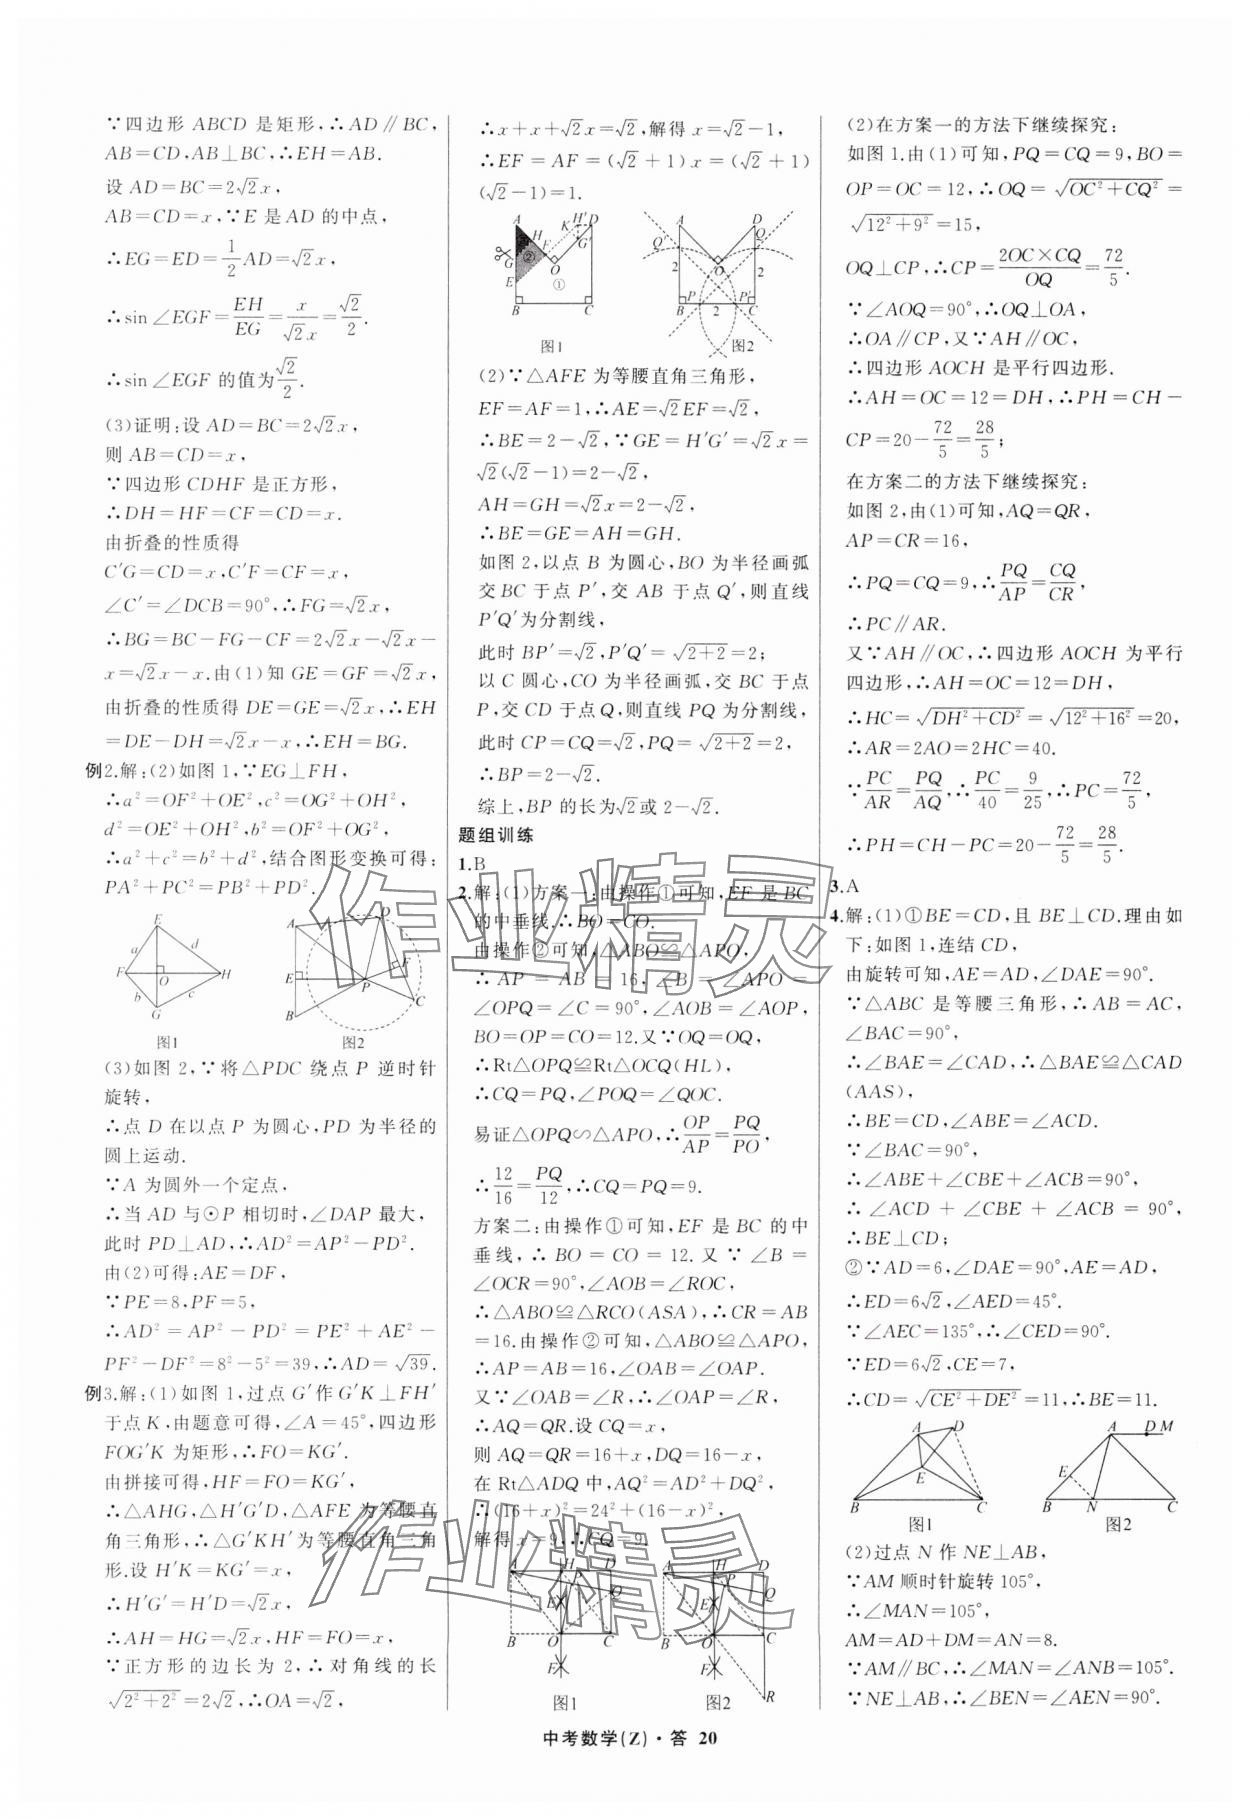 ∵四边形 ABCD 是矩形,∴AD∥BC,
AB=CD,AB⊥BC,∴EH=AB.
设 AD=BC=2√2x,
AB=CD=x,∵E 是 AD 的中点,
∴EG=ED=1/2AD=√2x,
∴sin∠EGF=EH/EG=x/√2x=√2/2.
∴sin∠EGF 的值为√2/2.
(3)证明:设 AD=BC=2√2x,
则 AB=CD=x,
∵四边形 CDHF 是正方形,
∴DH=HF=CF=CD=x.
由折叠的性质得
C′G=CD=x,C′F=CF=x,
∠C′=∠DCB=90°,∴FG=√2x,
∴BG=BC-FG-CF=2√2x-√2x-
x=√2x-x.由(1)知 GE=GF=√2x,
由折叠的性质得 DE=GE=√2x,∴EH
=DE-DH=√2x-x,∴EH=BG.
例2.解:(2)如图 1,∵EG⊥FH,
∴a²=OF²+OE²,c²=OG²+OH²,
d²=OE²+OH²,b²=OF²+OG²,
∴a²+c²=b²+d²,结合图形变换可得:
PA²+PC²=PB²+PD².
E a d F O H b c G
图1
A D E F P C B
图2
(3)如图 2,∵将△PDC 绕点 P 逆时针
旋转,
∴点 D 在以点 P 为圆心,PD 为半径的
圆上运动.
∵A 为圆外一个定点,
∴当 AD 与⊙P 相切时,∠DAP 最大,
此时 PD⊥AD,∴AD²=AP²-PD².
由(2)可得:AE=DF,
∵PE=8,PF=5,
∴AD²=AP²-PD²=PE²+AE²-
PF²-DF²=8²-5²=39,∴AD=√39.
例3.解:(1)如图 1,过点 G′作 G′K⊥FH′
于点 K,由题意可得,∠A=45°,四边形
FOG′K 为矩形,∴FO=KG′.
由拼接可得,HF=FO=KG′,
∴△AHG,△H′G′D,△AFE 为等腰直
角三角形,∴△G′KH′为等腰直角三角
形.设 H′K=KG′=x,
∴H′G′=H′D=√2x,
∴AH=HG=√2x,HF=FO=x,
∵正方形的边长为 2,∴对角线的长
√2²+2²=2√2,∴OA=√2,
∴x+x+√2x=√2,解得 x=√2-1,
∴EF=AF=(√2+1)x=(√2+1)
(√2-1)=1.
A H′ D H K F G′ G ② O E ① B C
图1
A D Q′ Q O 2 2 P P′ B 2 C
图2
(2)∵△AFE 为等腰直角三角形,
EF=AF=1,∴AE=√2EF=√2,
∴BE=2-√2,∵GE=H′G′=√2x=
√2(√2-1)=2-√2,
AH=GH=√2x=2-√2,
∴BE=GE=AH=GH.
如图 2,以点 B 为圆心,BO 为半径画弧
交 BC 于点 P′,交 AB 于点 Q′,则直线
P′Q′为分割线,
此时 BP′=√2,P′Q′=√2+2=2;
以 C 圆心,CO 为半径画弧,交 BC 于点
P,交 CD 于点 Q,则直线 PQ 为分割线,
此时 CP=CQ=√2,PQ=√2+2=2,
∴BP=2-√2.
综上,BP 的长为√2或 2-√2.
题组训练
1.B
2.解:(1)方案一:由操作①可知,EF 是 BC
的中垂线.∴BO=CO.
由操作②可知,△ABO≌△APO,
∴AP=AB=16,∠B=∠APO=
∠OPQ=∠C=90°,∠AOB=∠AOP,
BO=OP=CO=12.又∵OQ=OQ,
∴Rt△OPQ≌Rt△OCQ(HL),
∴CQ=PQ,∠POQ=∠QOC.
易证△OPQ∽△APO,∴OP/AP=PQ/PO,
∴12/16=PQ/12,∴CQ=PQ=9.
方案二:由操作①可知,EF 是 BC 的中
垂线,∴BO=CO=12.又∵∠B=
∠OCR=90°,∠AOB=∠ROC,
∴△ABO≌△RCO(ASA),∴CR=AB
=16.由操作②可知,△ABO≌△APO,
∴AP=AB=16,∠OAB=∠OAP.
又∵∠OAB=∠R,∴∠OAP=∠R,
∴AQ=QR.设 CQ=x,
则 AQ=QR=16+x,DQ=16-x,
在 Rt△ADQ 中,AQ²=AD²+DQ²,
∴(16+x)²=24²+(16-x)²,
解得 x=9,∴CQ=9.
A H D E Q B O C F
图1
A H D P Q E B O C F R
图2
(2)在方案一的方法下继续探究:
如图 1.由(1)可知,PQ=CQ=9,BO=
OP=OC=12,∴OQ=√OC²+CQ²=
√12²+9²=15,
OQ⊥CP,∴CP=2OC×CQ/OQ=72/5.
∵∠AOQ=90°,∴OQ⊥OA,
∴OA∥CP,又∵AH∥OC,
∴四边形 AOCH 是平行四边形.
∴AH=OC=12=DH,∴PH=CH-
CP=20-72/5=28/5;
在方案二的方法下继续探究:
如图 2,由(1)可知,AQ=QR,
AP=CR=16,
∴PQ=CQ=9,∴PQ/AP=CQ/CR,
∴PC∥AR.
又∵AH∥OC,∴四边形 AOCH 为平行
四边形,∴AH=OC=12=DH,
∴HC=√DH²+CD²=√12²+16²=20,
∴AR=2AO=2HC=40.
∵PC/AR=PQ/AQ,∴PC/40=9/25,∴PC=72/5,
∴PH=CH-PC=20-72/5=28/5.
3.A
4.解:(1)①BE=CD,且 BE⊥CD.理由如
下:如图 1,连结 CD,
由旋转可知,AE=AD,∠DAE=90°.
∵△ABC 是等腰三角形,∴AB=AC,
∠BAC=90°,
∴∠BAE=∠CAD,∴△BAE≌△CAD
(AAS),
∴BE=CD,∠ABE=∠ACD.
∵∠BAC=90°,
∴∠ABE+∠CBE+∠ACB=90°,
∴∠ACD+∠CBE+∠ACB=90°,
∴BE⊥CD;
②∵AD=6,∠DAE=90°,AE=AD,
∴ED=6√2,∠AED=45°.
∵∠AEC=135°,∴∠CED=90°.
∵ED=6√2,CE=7,
∴CD=√CE²+DE²=11,∴BE=11.
A D E B C
图1
A D M E B N C
图2
(2)过点 N 作 NE⊥AB,
∵AM 顺时针旋转 105°,
∴∠MAN=105°,
AM=AD+DM=AN=8.
∵AM∥BC,∴∠MAN=∠ANB=105°.
∵NE⊥AB,∴∠BEN=∠AEN=90°.
中考数学(Z)·答 20
作业精灵
作业精灵